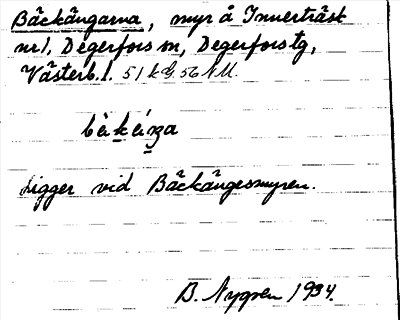 Bäckängarna, myr å Innerträsk
nr1, Degerfors sn, Degerfors tg,
Västerb.l. 51 kg 56 NU.
bäkäŋa
Ligger vid Bäckängesmyren.
B. Nygren 1934.